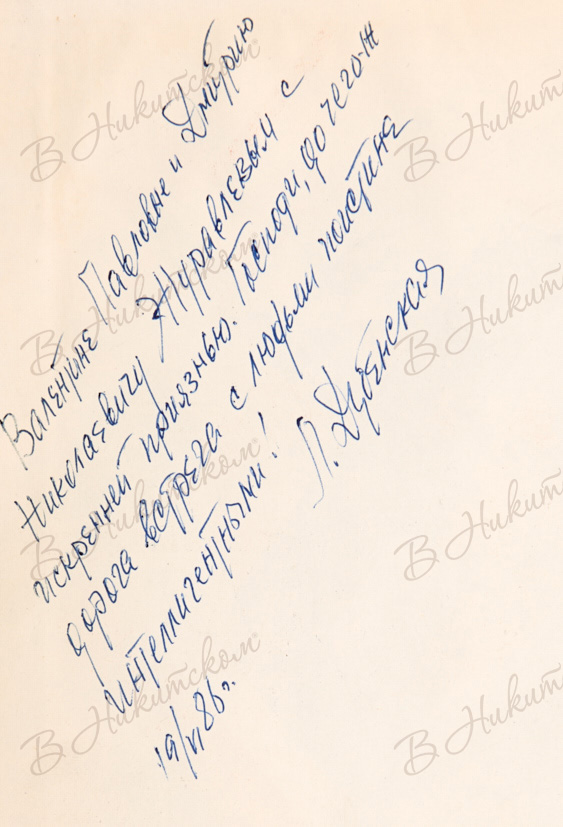 Валентине Павловне и Дмитрию
Николаевичу Журавлевым с
искренней приязнью. Господи, до чего ж
дорога встреча с людьми поистине
интеллигентными!
Л. Дубенская
19/VI 86г.
В Никитском
В Никитском
В Никитском
В Никитском
В Никитском
В Никит
В Никит
В Никит
В Никит